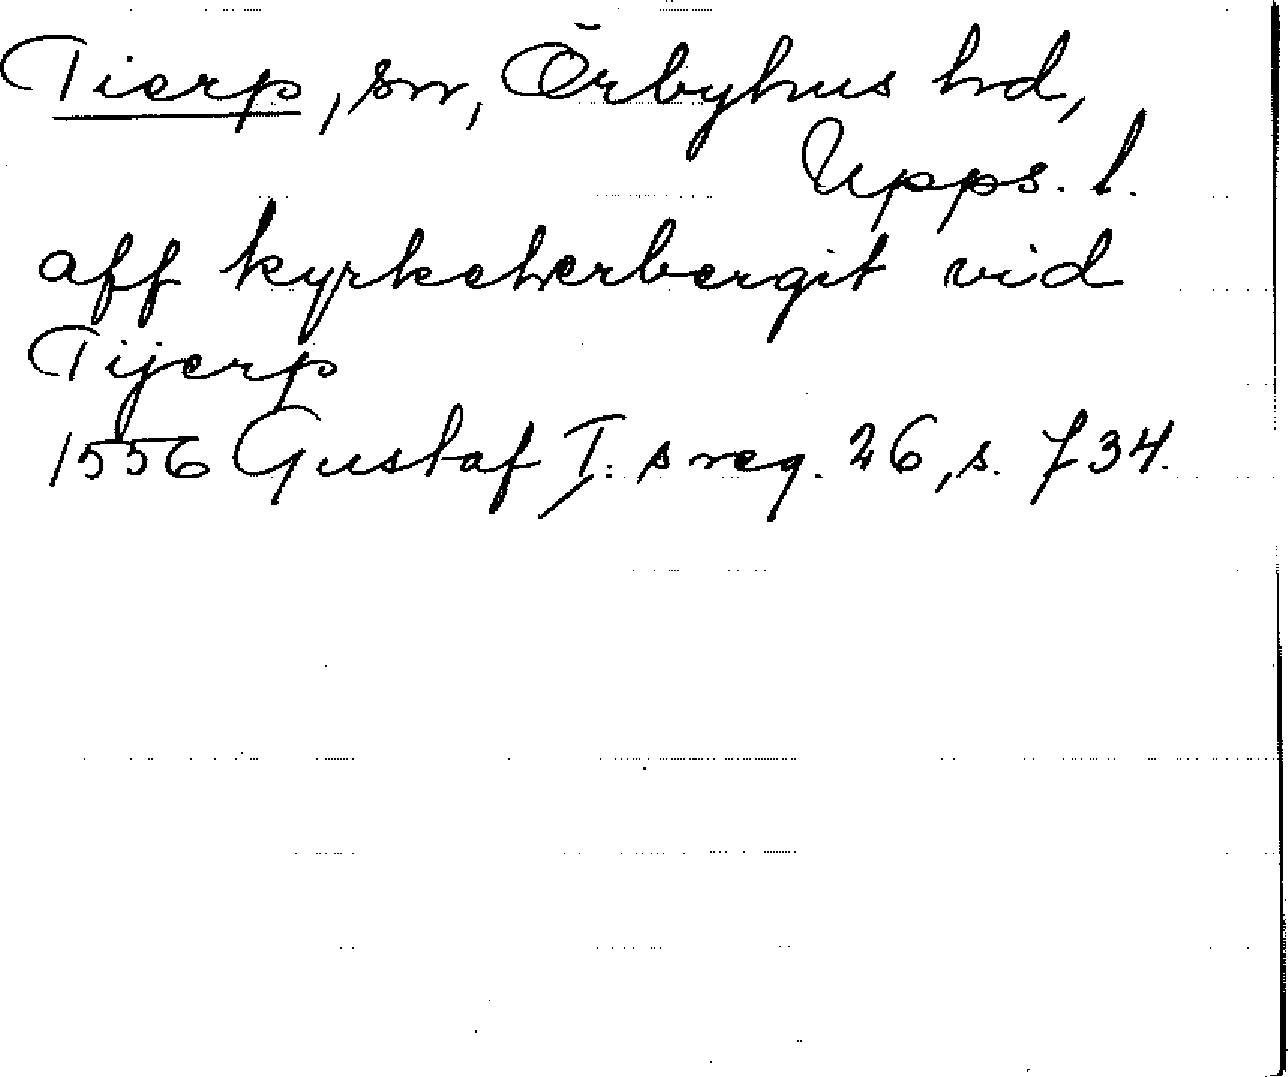 Tierp, sn, Örbyhus hd,
Upps. l.
aff kyrkeherbergit vid
Tijerp
1556 Gustaf I:s reg. 26, s. 734.